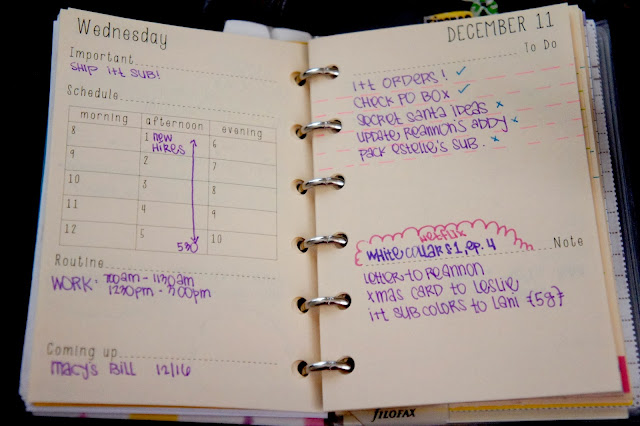 Wednesday
Important
Ship itt sub!
Schedule
morning afternoon evening
8 1 new hires 6
9 2 7
10 3 8
11 4 9
12 5 530 10
Routine
WORK: 700am - 1130am
1230pm - 400pm
Coming up
Macy's Bill 12/16
DECEMBER 11
To Do
itt orders! ✓
check po box ✓
secret santa ideas ×
update reannon's addy ×
pack estelle's sub. ×
netflix
white collar s1, ep. 4
Note
letter to reannon
xmas card to leslie
itt sub colors to lani {587}
FILOFAX